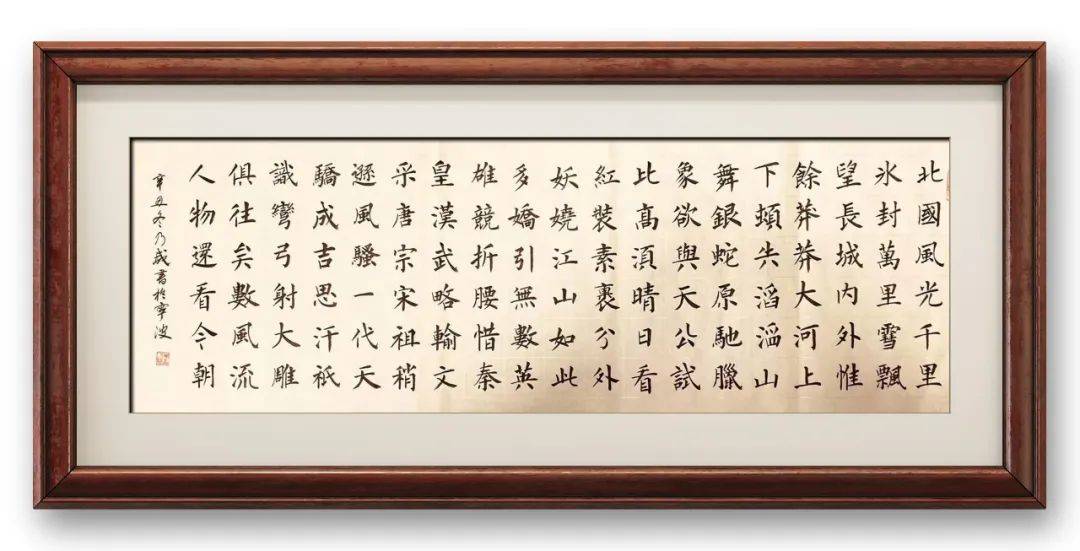 北國風光千里
氷封萬里雪飄
望長城内外惟
餘莽莽大河上
下頓失滔滔山
舞銀蛇原馳臘
象欲與天公試
比高須晴日看
紅裝素裹分外
妖嬈江山如此
多嬌引無數英
雄競折腰惜秦
皇漢武略輸文
采唐宗宋祖稍
遜風騷一代天
驕成吉思汗祇
識彎弓射大雕
俱往矣數風流
人物還看今朝
辛丑冬乃成書於寧波